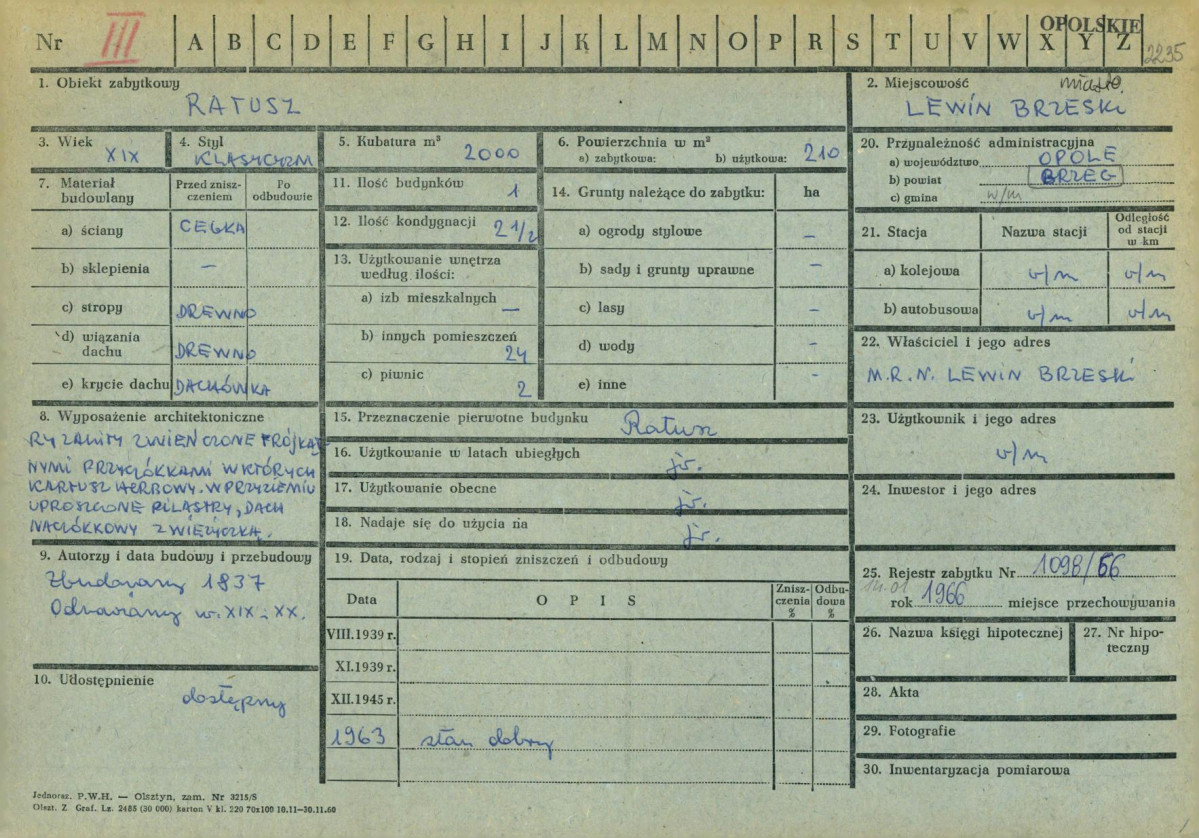 Nr III A B C D E F G H I J K L M N O P R S T U V W X Y Z
OPOLSKIE
2235
1. Obiekt zabytkowy
RATUSZ
2. Miejscowość miasto
LEWIN BRZESKI
3. Wiek
XIX
4. Styl
KLASYCYZM
5. Kubatura m³
2000
6. Powierzchnia w m²
a) zabytkowa: b) użytkowa: 210
20. Przynależność administracyjna
a) województwo OPOLE
b) powiat BRZEG
c) gmina w/m
7. Materiał budowlany
Przed zniszczeniem
Po odbudowie
a) ściany CEGŁA
b) sklepienia —
c) stropy DREWNO
d) wiązania dachu DREWNO
e) krycie dachu DACHÓWKA
11. Ilość budynków
1
12. Ilość kondygnacji
2 1/2
13. Użytkowanie wnętrza
według ilości:
a) izb mieszkalnych
—
b) innych pomieszczeń
24
c) piwnic
2
14. Grunty należące do zabytku: ha
a) ogrody stylowe —
b) sady i grunty uprawne —
c) lasy —
d) wody —
e) inne —
21. Stacja Nazwa stacji Odległość od stacji w km
a) kolejowa w/m w/m
b) autobusowa w/m w/m
22. Właściciel i jego adres
M.R.N. LEWIN BRZESKI
8. Wyposażenie architektoniczne
RYZALITY ZWIEŃCZONE TRÓJKĄT
NYMI PRZYCZÓŁKAMI W KTÓRYCH
KARTUSZ HERBOWY. W PRZYZIEMIU
UPROSZCZONE PILASTRY, DACH
NACZÓŁKOWY Z WIEŻYCZKĄ.
15. Przeznaczenie pierwotne budynku Ratusz
16. Użytkowanie w latach ubiegłych
jw.
17. Użytkowanie obecne
jw.
18. Nadaje się do użycia na
jw.
23. Użytkownik i jego adres
w/m
24. Inwestor i jego adres
9. Autorzy i data budowy i przebudowy
Zbudowany 1837
Odnawiany w. XIX - XX.
10. Udostępnienie
dostępny
19. Data, rodzaj i stopień zniszczeń i odbudowy
Data OPIS Zniszczenia % Odbudowa %
VIII.1939 r.
XI.1939 r.
XII.1945 r.
1963 stan dobry
25. Rejestr zabytku Nr 1098/66
14.01
rok 1966 miejsce przechowywania
26. Nazwa księgi hipotecznej
27. Nr hipoteczny
28. Akta
29. Fotografie
30. Inwentaryzacja pomiarowa
Jednoraz. P.W.H. — Olsztyn, zam. Nr 3215/S
Olszt. Z. Graf. Lz. 2485 (30 000) karton V kl. 220 70x100 10.11—30.11.60